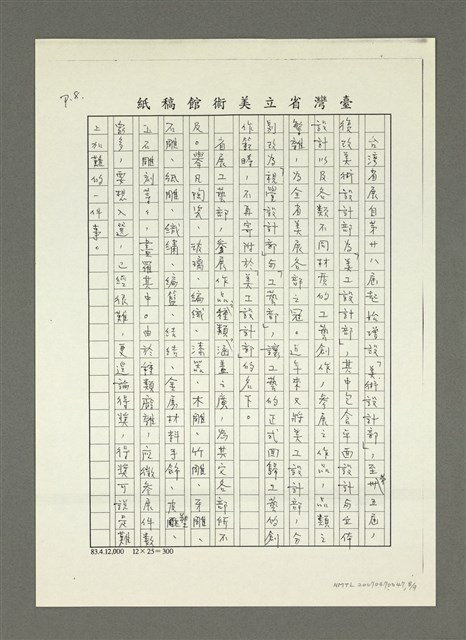 臺灣省立美術館稿紙
P.8.
台灣省展自第廿八屆起始增設「美術設計部」,至第卅五屆,
後改美術設計部為「美工設計部」,其中包含平面設計與立体
設計以及各類不同材質的工藝創作,參展之作品,品類之
繁雜,為全省美展各部之冠。近年來又將美工設計部,分
別改為「視覺設計部」與「工藝部」,讓工藝的正式回歸工藝的創
作範疇,不再寄附於「美工設計部」的名下。
省展工藝部,參展作品種類涵蓋之廣,為其它各部所不
及。舉凡陶瓷、玻璃、編織、漆器、木雕、竹雕、牙雕、
石雕、紙雕、織繡、編籃、結結、金屬材料手飾、皮雕塑、
玉石雕刻等,盡羅其中。由於種類龐雜,应徵參展件數
眾多,要想入選,已經很難,更遑論得獎,得獎可說是難
上加難的一件事。
83.4.12,000 12×25=300
NMTL20070470447 8/9